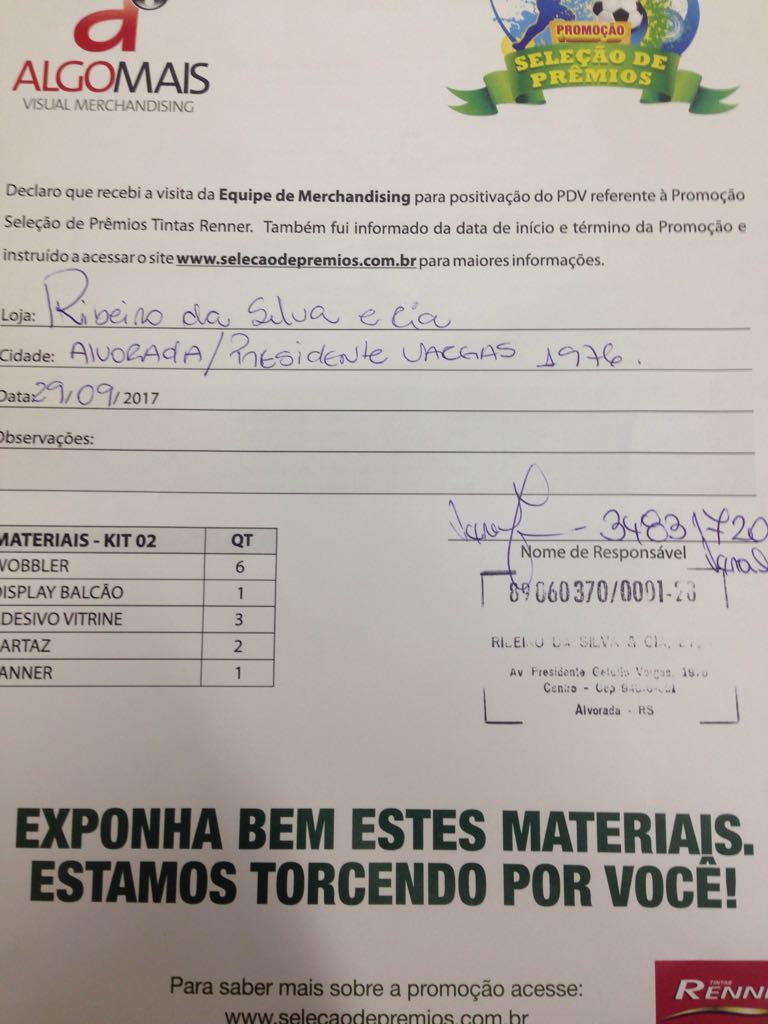 ALGOMAIS
VISUAL MERCHANDISING
PROMOÇÃO
SELEÇÃO DE
PRÊMIOS
Declaro que recebi a visita da Equipe de Merchandising para positivação do PDV referente à Promoção
Seleção de Prêmios Tintas Renner. Também fui informado da data de início e término da Promoção e
instruído a acessar o site www.selecaodepremios.com.br para maiores informações.
Loja: Ribeiro da Silva e cia
Cidade: ALVORADA/PRESIDENTE VARGAS 1976.
Data: 29/09/2017
Observações:
MATERIAIS - KIT 02 QT
WOBBLER 6
DISPLAY BALCÃO 1
ADESIVO VITRINE 3
CARTAZ 2
BANNER 1
34831720
Nome de Responsável
RIBEIRO DA SILVA & CIA
Av Presidente Getulio Vargas,
Centro - Cep
Alvorada - RS
EXPONHA BEM ESTES MATERIAIS.
ESTAMOS TORCENDO POR VOCÊ!
Para saber mais sobre a promoção acesse:
www.selecaodepremios.com.br
TINTAS
RENN